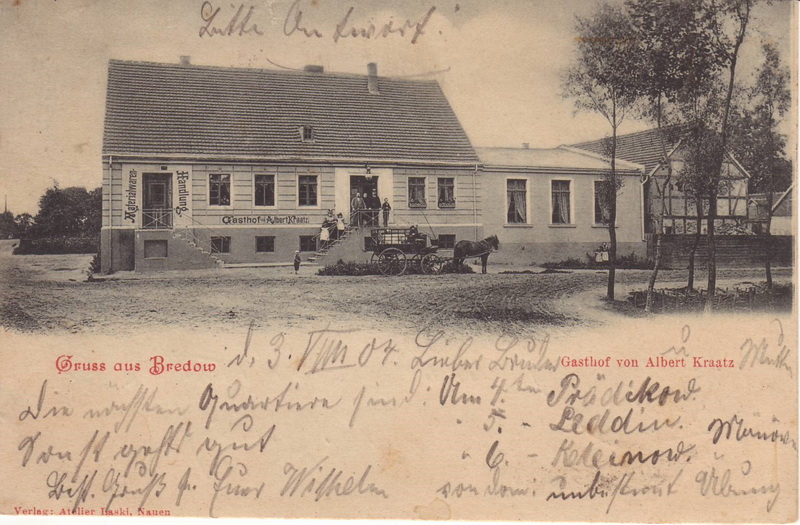 Bitte Antwort!
Materialwaren-
Handlung
Gasthof von Albert Kraatz.
Gruss aus Bredow
Gasthof von Albert Kraatz
d. 3. VIII 04. Lieber Bruder u Mutter
Die nächsten Quartiere sind: Am 4.ten Prädikow.
" 5. - Leddin.
Sonst geht's gut
" 6. - Kleinow.
Best. Gruß Euer Wilhelm
von dem: unbestimmt Übung
Verlag: Atelier Baski, Nauen